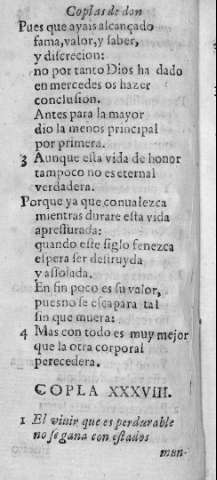 Coplas de don
Pues que ayais alcançado
fama, valor, y saber,
y discrecion:
no por tanto Dios ha dado
en mercedes os hazer
conclusion.
Antes para la mayor
dio la menos principal
por primera.
3 Aunque esta vida de honor
tampoco no es eternal
verdadera.
Porque ya que conualezca
mientras durare esta vida
apresturada:
quando este siglo fenezca
espera ser destruyda
y assolada.
En fin poco es su valor,
pues no se escapara tal
sin que muera:
4 Mas con todo es muy mejor
que la otra corporal
perecedera.
COPLA XXXVIII.
1 El viuir que es perdurable
no se gana con estados
mun-